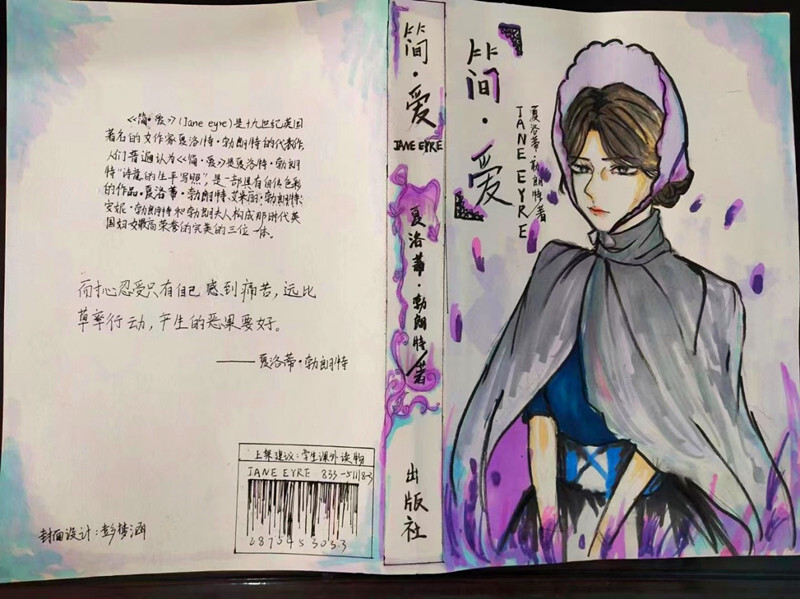 《简·爱》(Jane eyre)是十九世纪英国
著名的女作家夏洛蒂·勃朗特的代表作,
人们普遍认为《简·爱》是夏洛特·勃朗
特"诗意的生平写照",是一部具有自传色彩
的作品。夏洛蒂·勃朗特、艾米丽·勃朗特、
安妮·勃朗特和勃朗夫人构成那时代英
国妇女最高荣誉的完美的三位一体。
耐心忍受只有自己感到痛苦,远比
草率行动,产生的恶果要好。
——夏洛蒂·勃朗特
上架建议:学生课外读物
JANE EYRE 833-5118-3
封面设计:彭梦涵
简·爱
JANE EYRE
夏洛蒂·勃朗特/著
出版社
简·爱
JANE EYRE
夏洛蒂·勃朗特/著